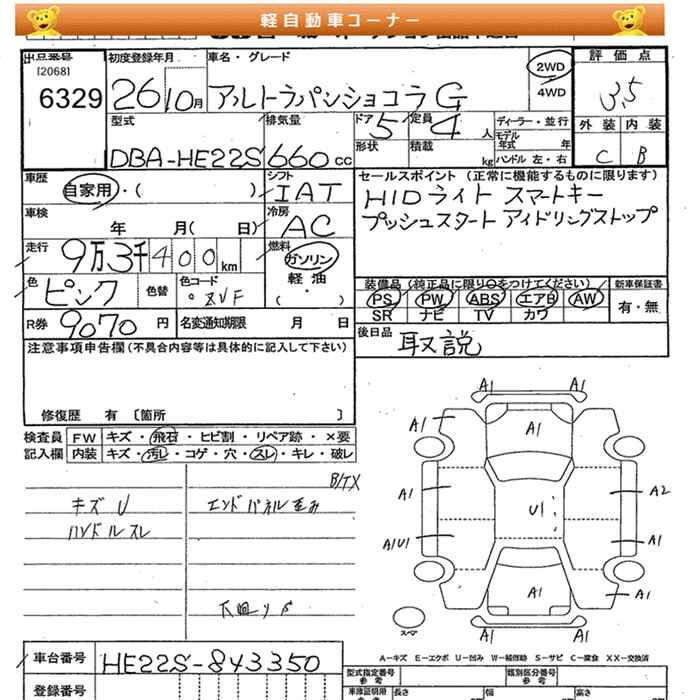 軽自動車コーナー
出品番号 初度登録年月 車名・グレード 評価点
[2068] 2WD
6329 26 10月 アルトラパンショコラG 4WD 3.5
型式 排気量 ドア 定員 ディーラー・並行 外装 内装
5 4 人 モデル年式 年
DBA-HE22S 660cc 形状 積載 kg ハンドル 左・右 C B
車歴 シフト セールスポイント (正常に機能するものに限ります)
自家用・( ) IAT HIDライト スマートキー
車検 冷房 プッシュスタート アイドリングストップ
年 月( 日) AC
走行 燃料
9万3千400km ガソリン
色 色替 色コード 軽油 装備品 (純正品に限り○をつけてください) 新車保証書
ピンク ZVF ・( ) PS PW ABS エアB AW 有・無
SR ナビ TV カワ
R券 9070円 名変通知期限 月 日 後日品 取説
注意事項申告欄(不具合内容等は具体的に記入して下さい)
修復歴 有 〔箇所 〕
検査員 FW キズ・飛石・ヒビ割・リペア跡・×要
記入欄 内装 キズ・汚レ・コゲ・穴・スレ・キレ・破レ
B/TX
キズU エンドパネル歪み
ハンドルスレ
下廻りサビ
A1 A1
A1 A1 A1
A1 U1 A2
A1U1 A1
A1 A1
スペア
A1 A1
A-キズ E-エクボ U-凹み W-補修跡 S-サビ C-腐食 XX-交換済
車台番号 HE22S-843350 型式指定番号 参考 類別区分番号 参考
登録番号 車庫証明用 参考 長さ 幅 高さ